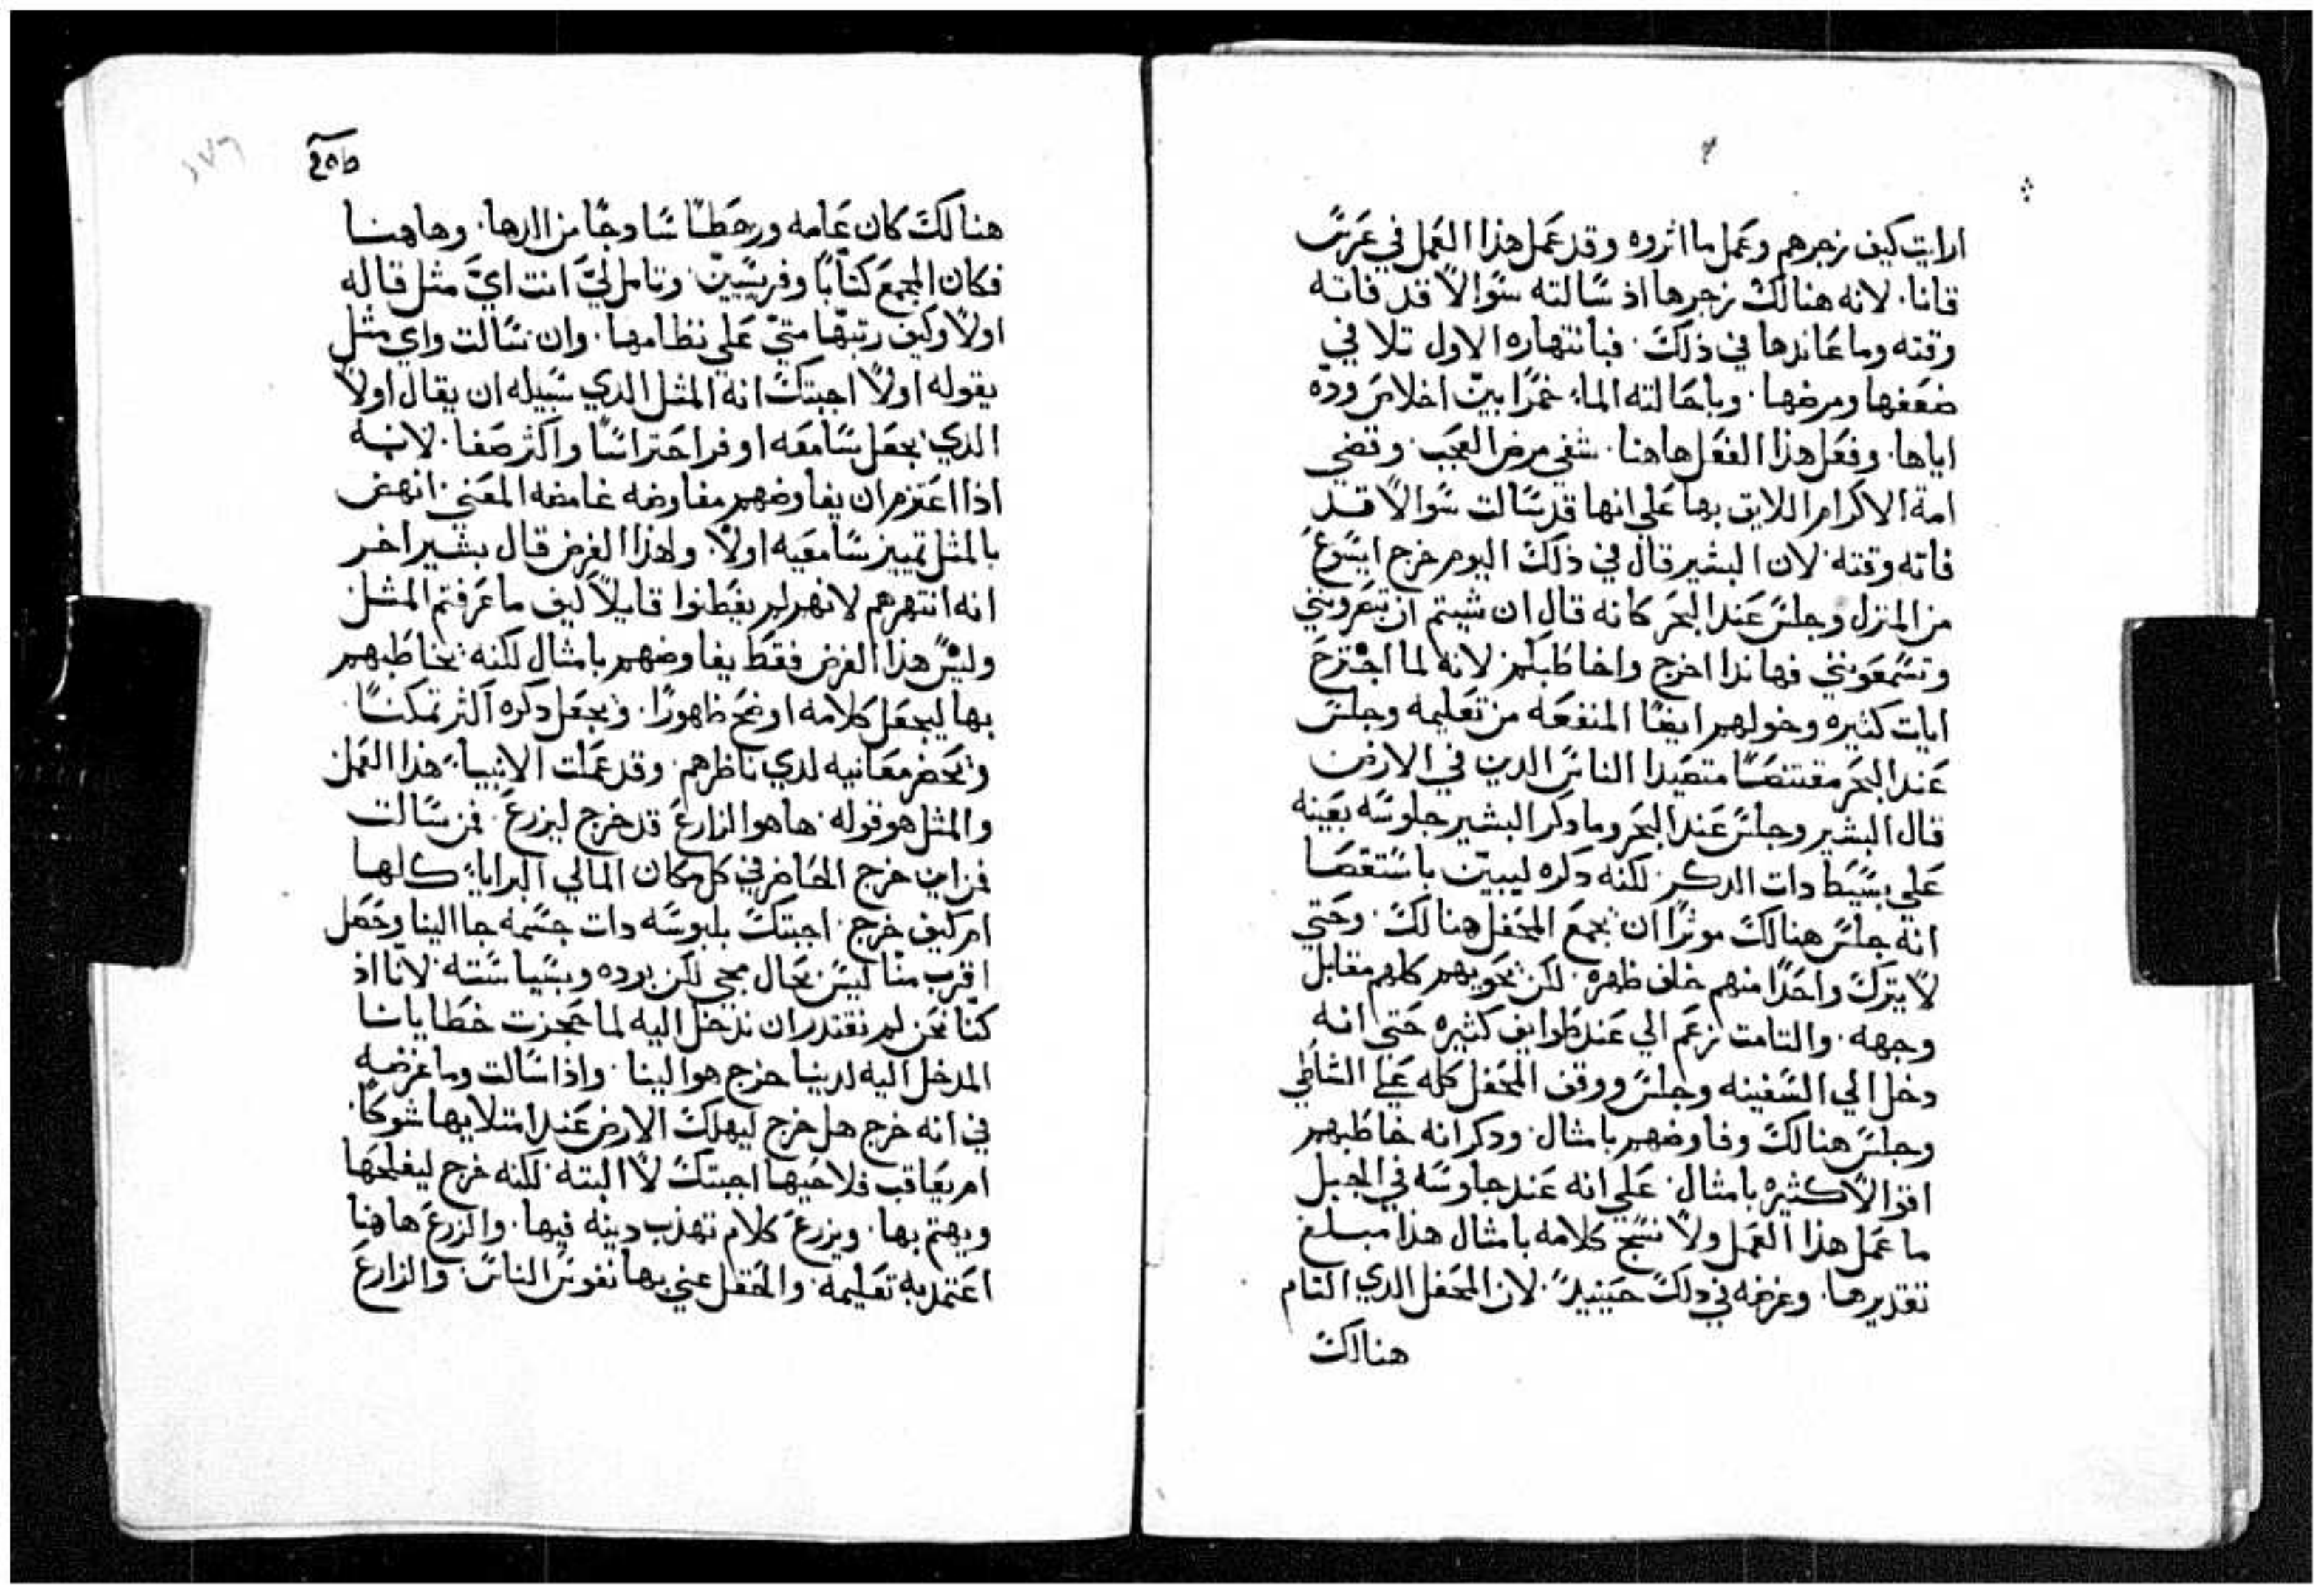 ارايت كيف زجرهم وعمل ما اثروه وقد عمل هذا العمل في عرس
قانا. لانه هنالك زجرها اذ سالته سوالاً قد فاته
وقته وما عاندها في ذلك. فبانتهاره الاول تلافي
ضعفها ومرضها. وباحالته الماء خمرًا بيّن اخلاص ودّه
اياها. وفعل هذا الفعل هاهنا. شفي مرض العجب. وقضي
امه الاكرام اللايق بها علي انها قد سالت سوالاً قد
فاته وقته. لان البشير قال في ذلك اليوم خرج ايسوع
من المنزل وجلس عند البحر كانه قال ان شيتم ان تبصرونني
وتسمعونني فهاندا اخرج واخاطبكم لانه لما اجترح
ايات كثيره وخولهم ايضًا المنفعه من تعليمه وجلس
عند البحر مقتنصًا متصيدا الناس الدين في الارض
قال البشير وجلس عند البحر وما دكر البشير جلوسه بعينه
علي بسيط دات الدكر. لكنه دكره ليبيّن باستقصا
انه جلس هنالك موثرًا ان يجمع المحفل هنالك. وحتي
لا يترك واحدًا منهم خلف ظهره. لكن يحويهم كلهم مقابل
وجهه. والتامت زعم الي عنده طوايف كثيره حتي انه
دخل الي السفينه وجلس ووقف المحفل كله علي الشاطي
وجلس هنالك وفاوضهم بامثال. ودكر انه خاطبهم
اقوالاً كثيره بامثال. علي انه عند جلوسه في الجبل
ما عمل هذا العمل ولا نسج كلامه بامثال هذا مبلغ
تقديرها. وغرضه في دلك حينيدٍ. لان المحفل الدي التام
هنالك
٢٥٥
١٧٦
هنالك كان عامه ورهطًا سادجًا من الدها. وهاهنا
فكان المجمع كتابًا وفريسيين. وتامل ليّ انت ايّ مثل قاله
اولاً وكيف رتبها متيّ علي نظامها. وان سالت واي مثل
يقوله اولاً اجبتك انه المثل الدي سبيله ان يقال اولاً
الدي يجعل سامعه اوفر احتراسًا واكثر صغا. لانه
اذا اعتزم ان يفاوضهم مفاوضه غامضه المعني. انهض
بالمثل تمييز سامعيه اولاً. ولهذا الغرض قال بشير اخر
انه انتهرهم لانهم لم يفطنوا قايلاً كيف ما عرفتم المثل
وليس هذا الغرض فقط يفاوضهم بامثال لكنه يخاطبهم
بها ليجعل كلامه اوضح ظهورًا. ويجعل دكره اكثر تمكنًا.
ويحضر معانيه لدي ناظرهم. وقد عملت الانبياء هذا العمل
والمثل هو قوله. هاهو الزارع قد خرج ليزرع. فمن سالت
فمن اين خرج الحاضر في كل مكان المالي البرايا كلها
ام كيف خرج. اجبتك بلبوسه دات جسمه جا الينا وحصل
اقرب منا ليس بحال مجي لكن بوده وبسياسته لانّا اذ
كنّا نحن لم نقتدر ان ندخل اليه لما حجزت خطايانا
المدخل اليه لدينا خرج هو الينا. واذا سالت وما غرضه
في انه خرج هل خرج ليهلك الارض عند امتلايها شوكًا.
ام يعاقب فلاحيها اجبتك لا البته لكنه خرج ليفلحها
ويهتم بها. ويزرع كلام تهذب دينه فيها. والزرع هاهنا
اعتمد به تعليمه. والحقل عني بها نفوس الناس. والزارع